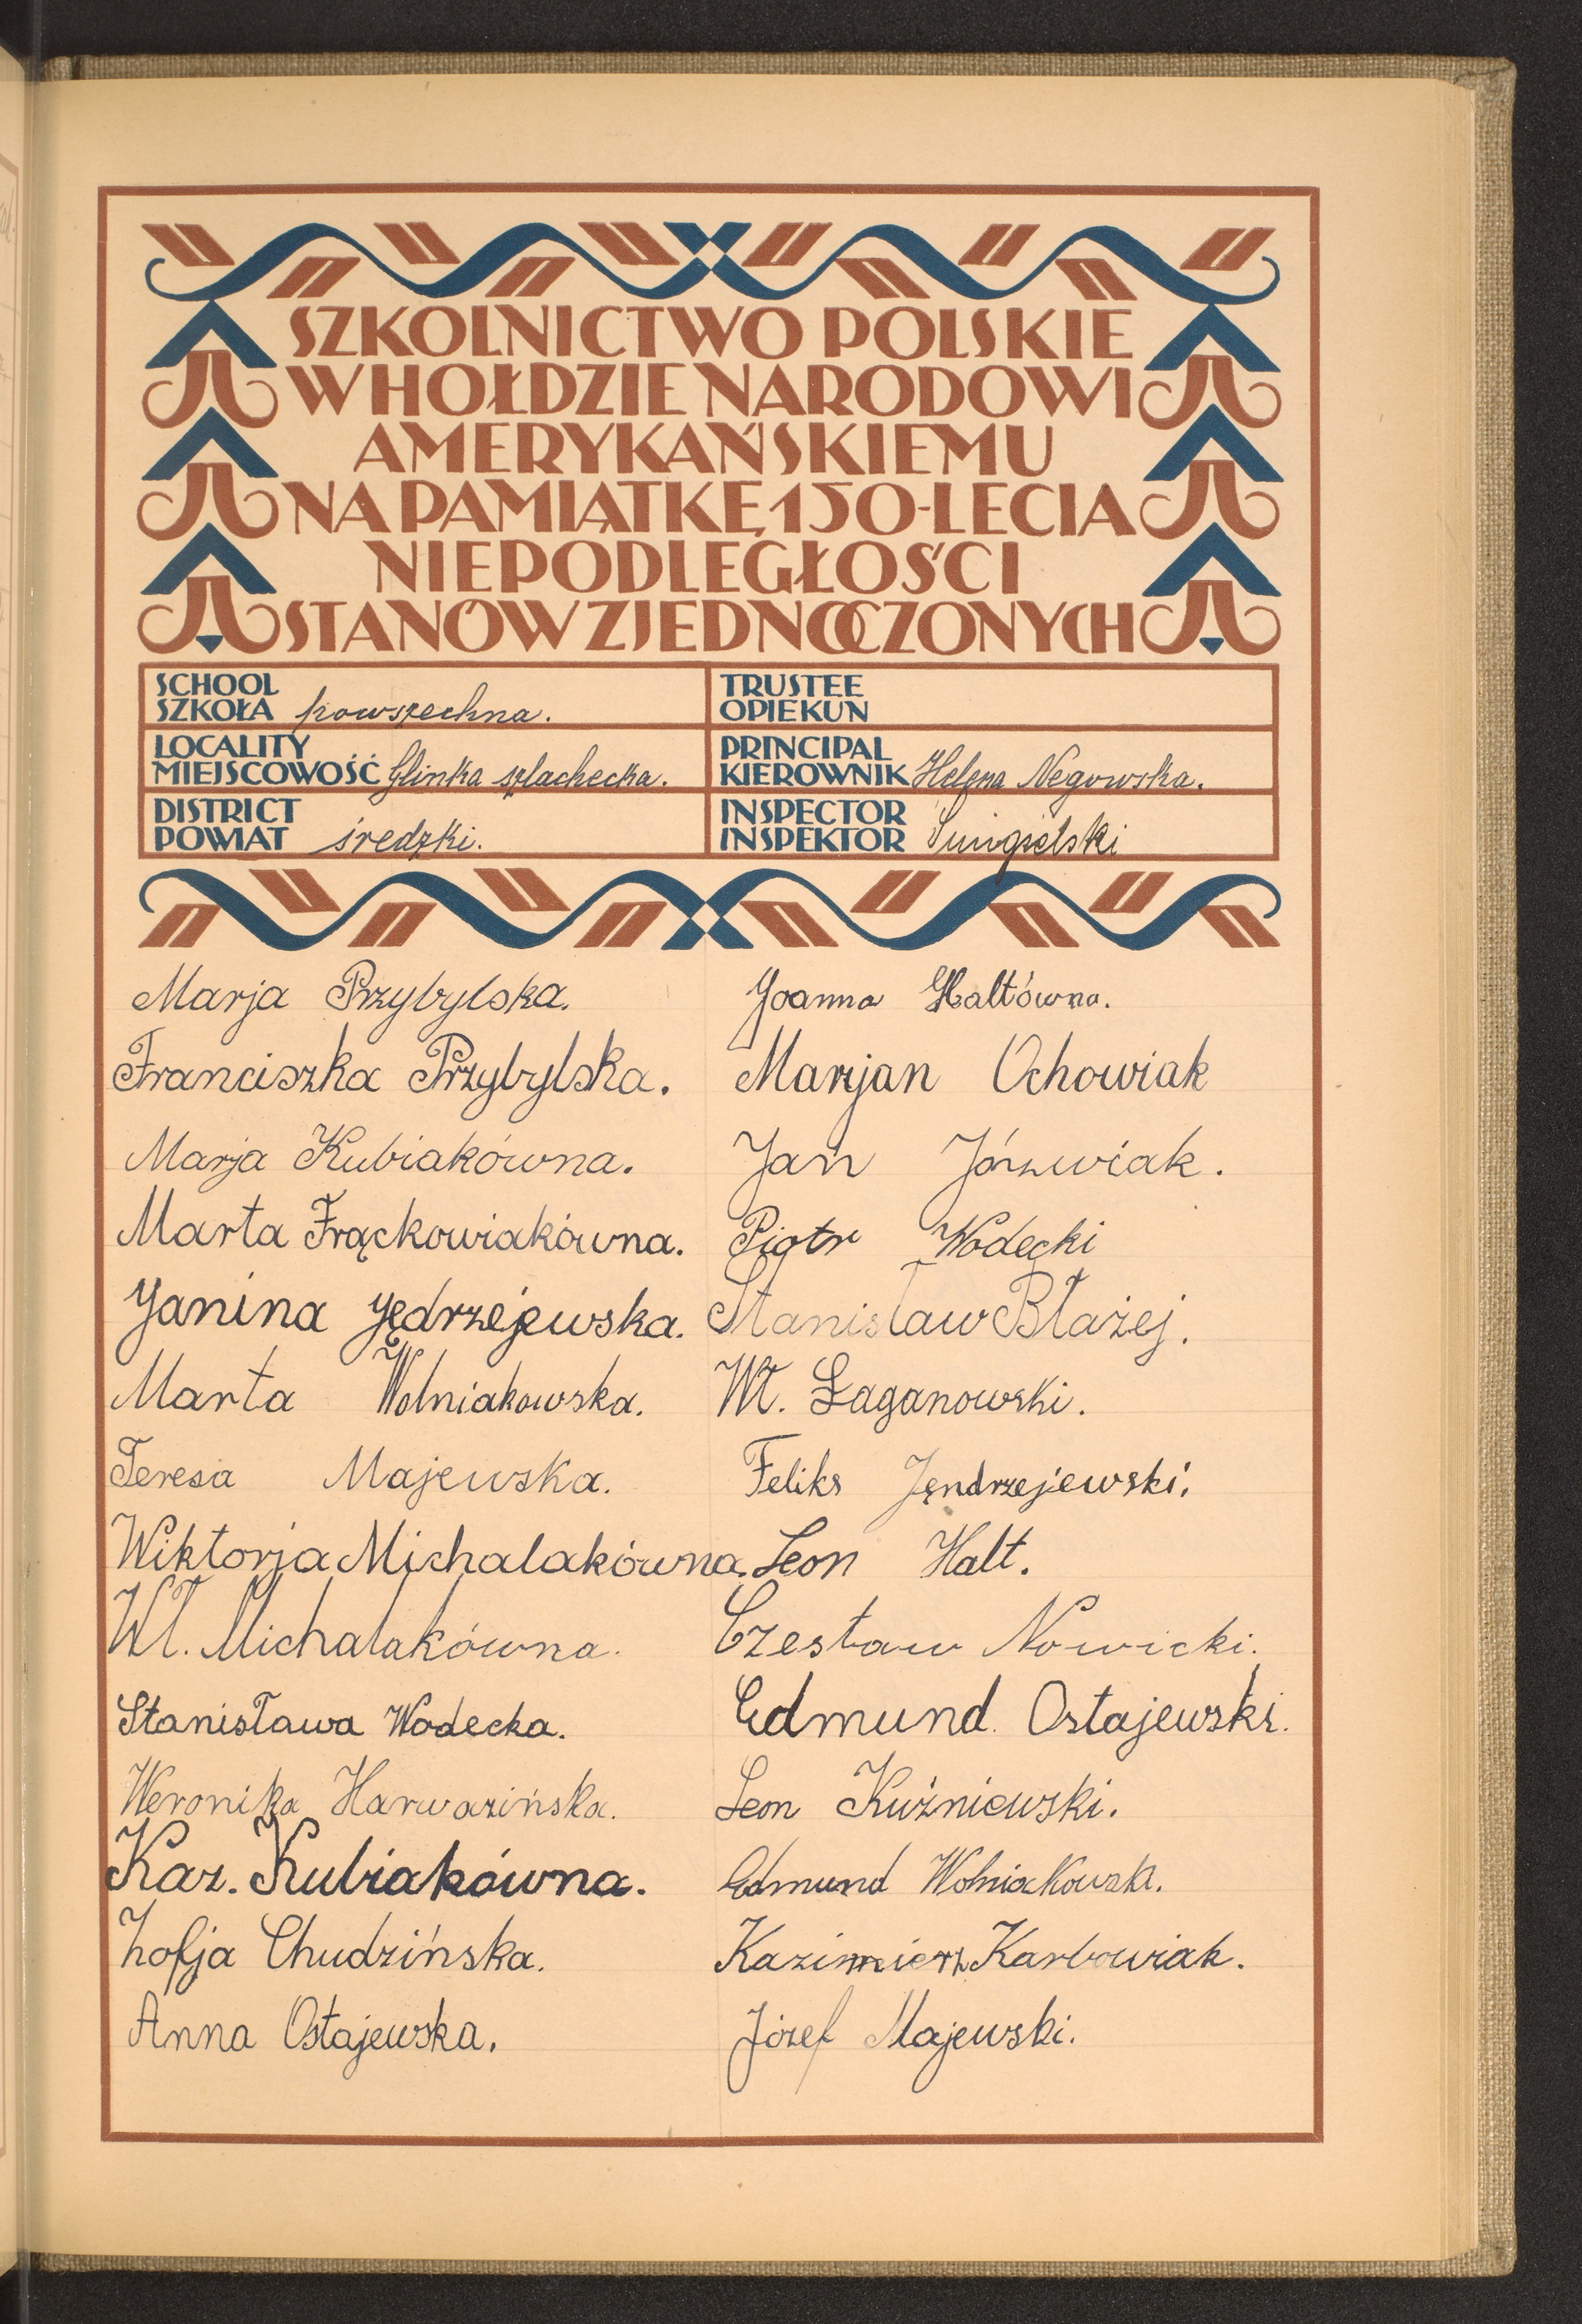 SZKOLNICTWO POLSKIE
W HOŁDZIE NARODOWI
AMERYKAŃSKIEMU
NA PAMIĄTKĘ 150-LECIA
NIEPODLEGŁOŚCI
STANÓW ZJEDNOCZONYCH
SCHOOL
SZKOŁA powszechna.
TRUSTEE
OPIEKUN
LOCALITY
MIEJSCOWOŚĆ Glinka szlachecka.
PRINCIPAL
KIEROWNIK Helena Negowska.
DISTRICT
POWIAT średzki.
INSPECTOR
INSPEKTOR
Marja Przybylska.
Franciszka Przybylska.
Marja Kubiakówna.
Marta Frąckowiakówna.
Janina Jędrzejewska.
Marta Wolniakowska.
Teresa Majewska.
Wiktorja Michalakówna.
Wł. Michalakówna.
Stanisława Wodecka.
Weronika Harwazińska.
Kaz. Kubiakówna.
Zofja Chudzińska.
Anna Ostajewska.
Joanna Haltówna.
Marjan Ochowiak
Jan Józwiak.
Piotr Wodecki
Stanisław Błażej.
Wł. Łaganowski.
Feliks Jęndrzejewski.
Leon Halt.
Czesław Nowicki.
Edmund Ostajewski.
Leon Kuźniewski.
Edmund Wolniakowski.
Kazimierz Karbowiak.
Józef Majewski.